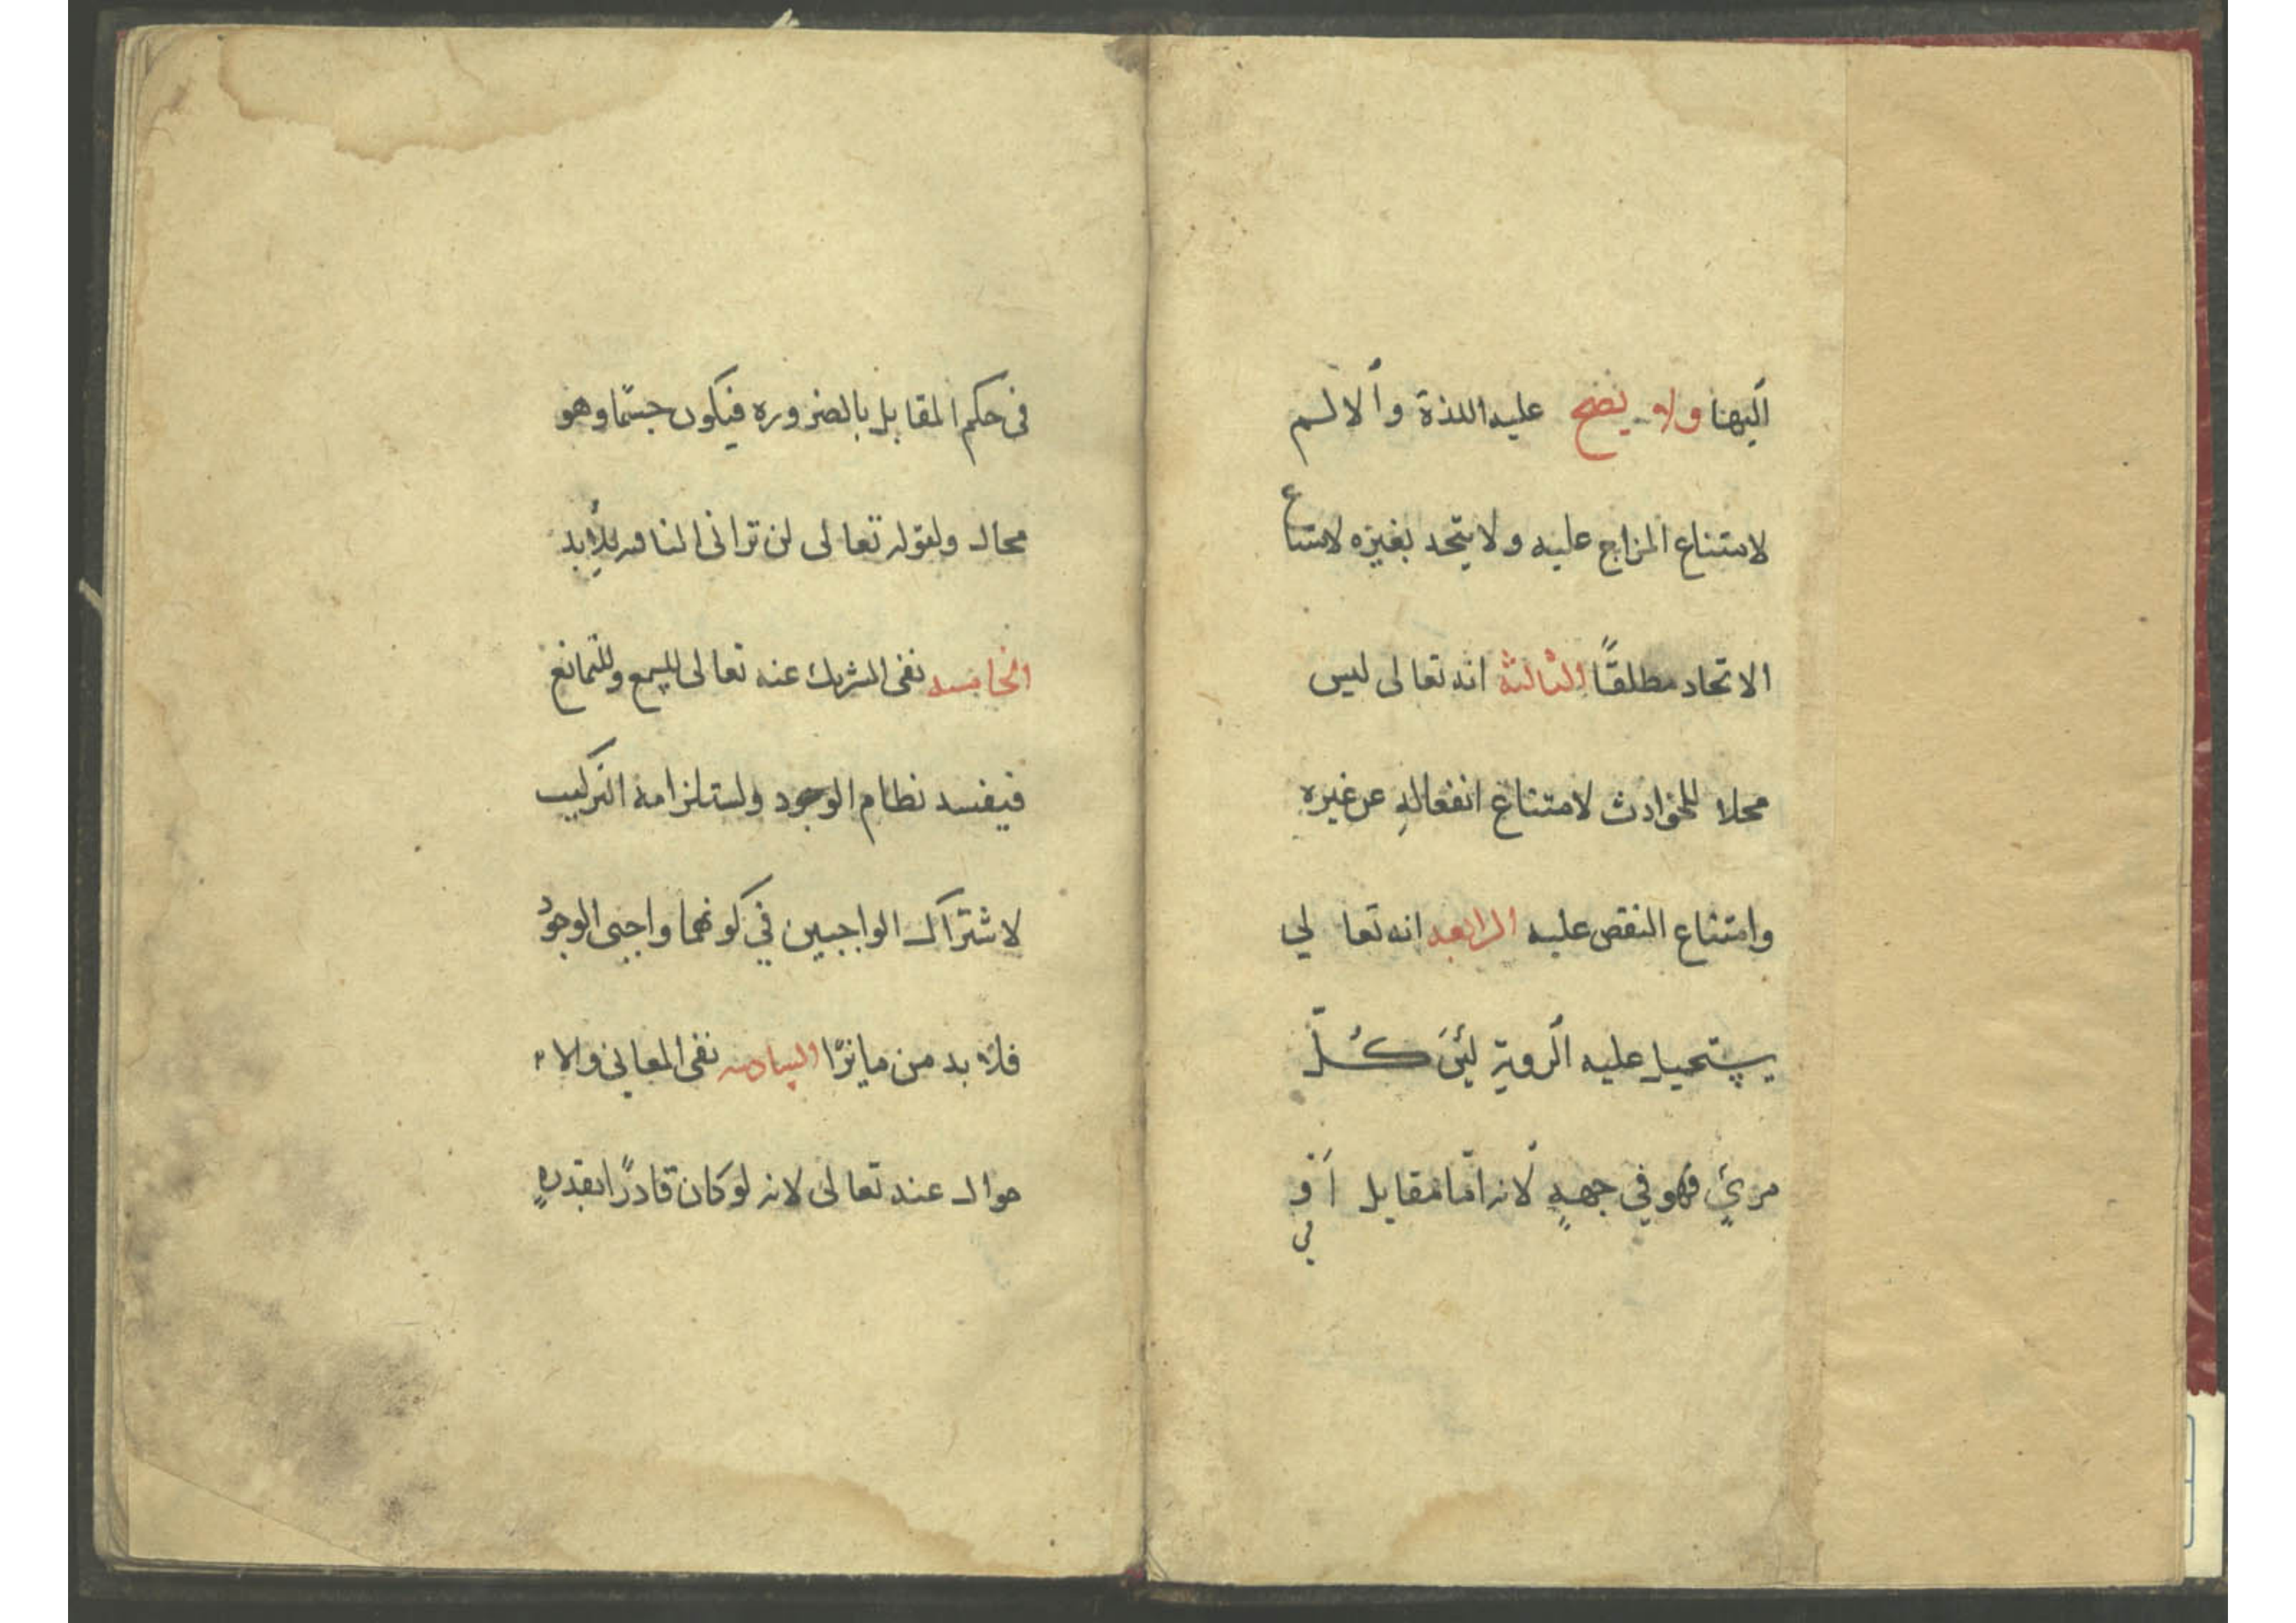 اليهنا ولا يصح عليه اللذة والالم
لامتناع المزاج عليه ولا يتحد بغيره لامتناع
الاتحاد مطلقًا الثالثة انه تعالى ليس
محلا للحوادث لامتناع انفعالهِ عن غيره
وامتناع النقص عليه الرابعه انه تعالي
يستحيل عليه الروية لئنَ كُلّ
مريٍ فهو في جهةٍ لانه امّا مقابل اَو في
فى حكم المقابل بالضروره فيكون جسمًا وهو
محال ولقوله تعالى لن ترانى النافيه للأبد
الخامسه نفى الشريك عنه تعالى للسمع وللتمانع
فيفسد نظام الوجود ولستلزامه التركيب
لاشتراك الواجبين في كونهما واجبى الوجود
فلا بد من مايزًا السادسه نفى المعاني والا
حوال عنه تعالى لانه لو كان قادرًا بقدرهٍ